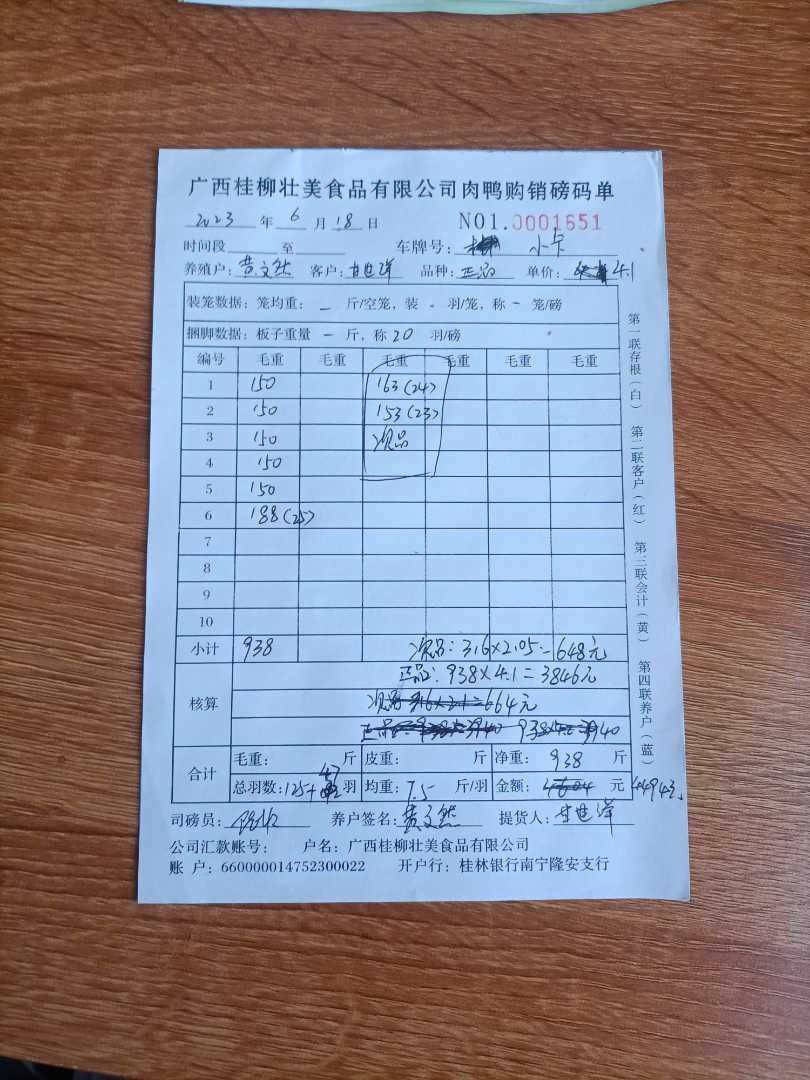 广西桂柳壮美食品有限公司肉鸭购销磅码单
2023 年 6 月 18 日 NO1.0001651
时间段 至 车牌号: 小卡
养殖户: 黄文然 客户: 甘世洋 品种: 正品 单价: 4.1
装笼数据: 笼均重: - 斤/空笼, 装 - 羽/笼, 称 - 笼/磅
捆脚数据: 板子重量 - 斤, 称 20 羽/磅
编号 毛重 毛重 毛重 毛重 毛重 毛重
1 150 163(24)
2 150 153(23)
3 150 次品
4 150
5 150
6 188(25)
7
8
9
10
小计 938 次品: 316×2.05=648元
正品: 938×4.1=3846元
核算 次品 316×2.1=664元
正品: 3940 938×4.2 3940
合计 毛重: 斤 皮重: 斤 净重: 938 斤
总羽数: 125+47 羽 均重: 7.5 斤/羽 金额: 4604 元 4494元
司磅员: 养户签名: 黄文然 提货人: 甘世洋
公司汇款账号: 户名: 广西桂柳壮美食品有限公司
账 户: 660000014752300022 开户行: 桂林银行南宁隆安支行
第一联存根(白) 第二联客户(红) 第三联会计(黄) 第四联养户(蓝)